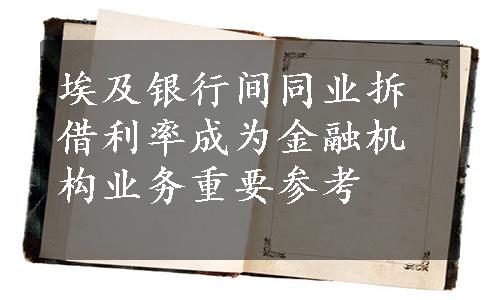 埃及银行间同业拆
借利率成为金融机
构业务重要参考